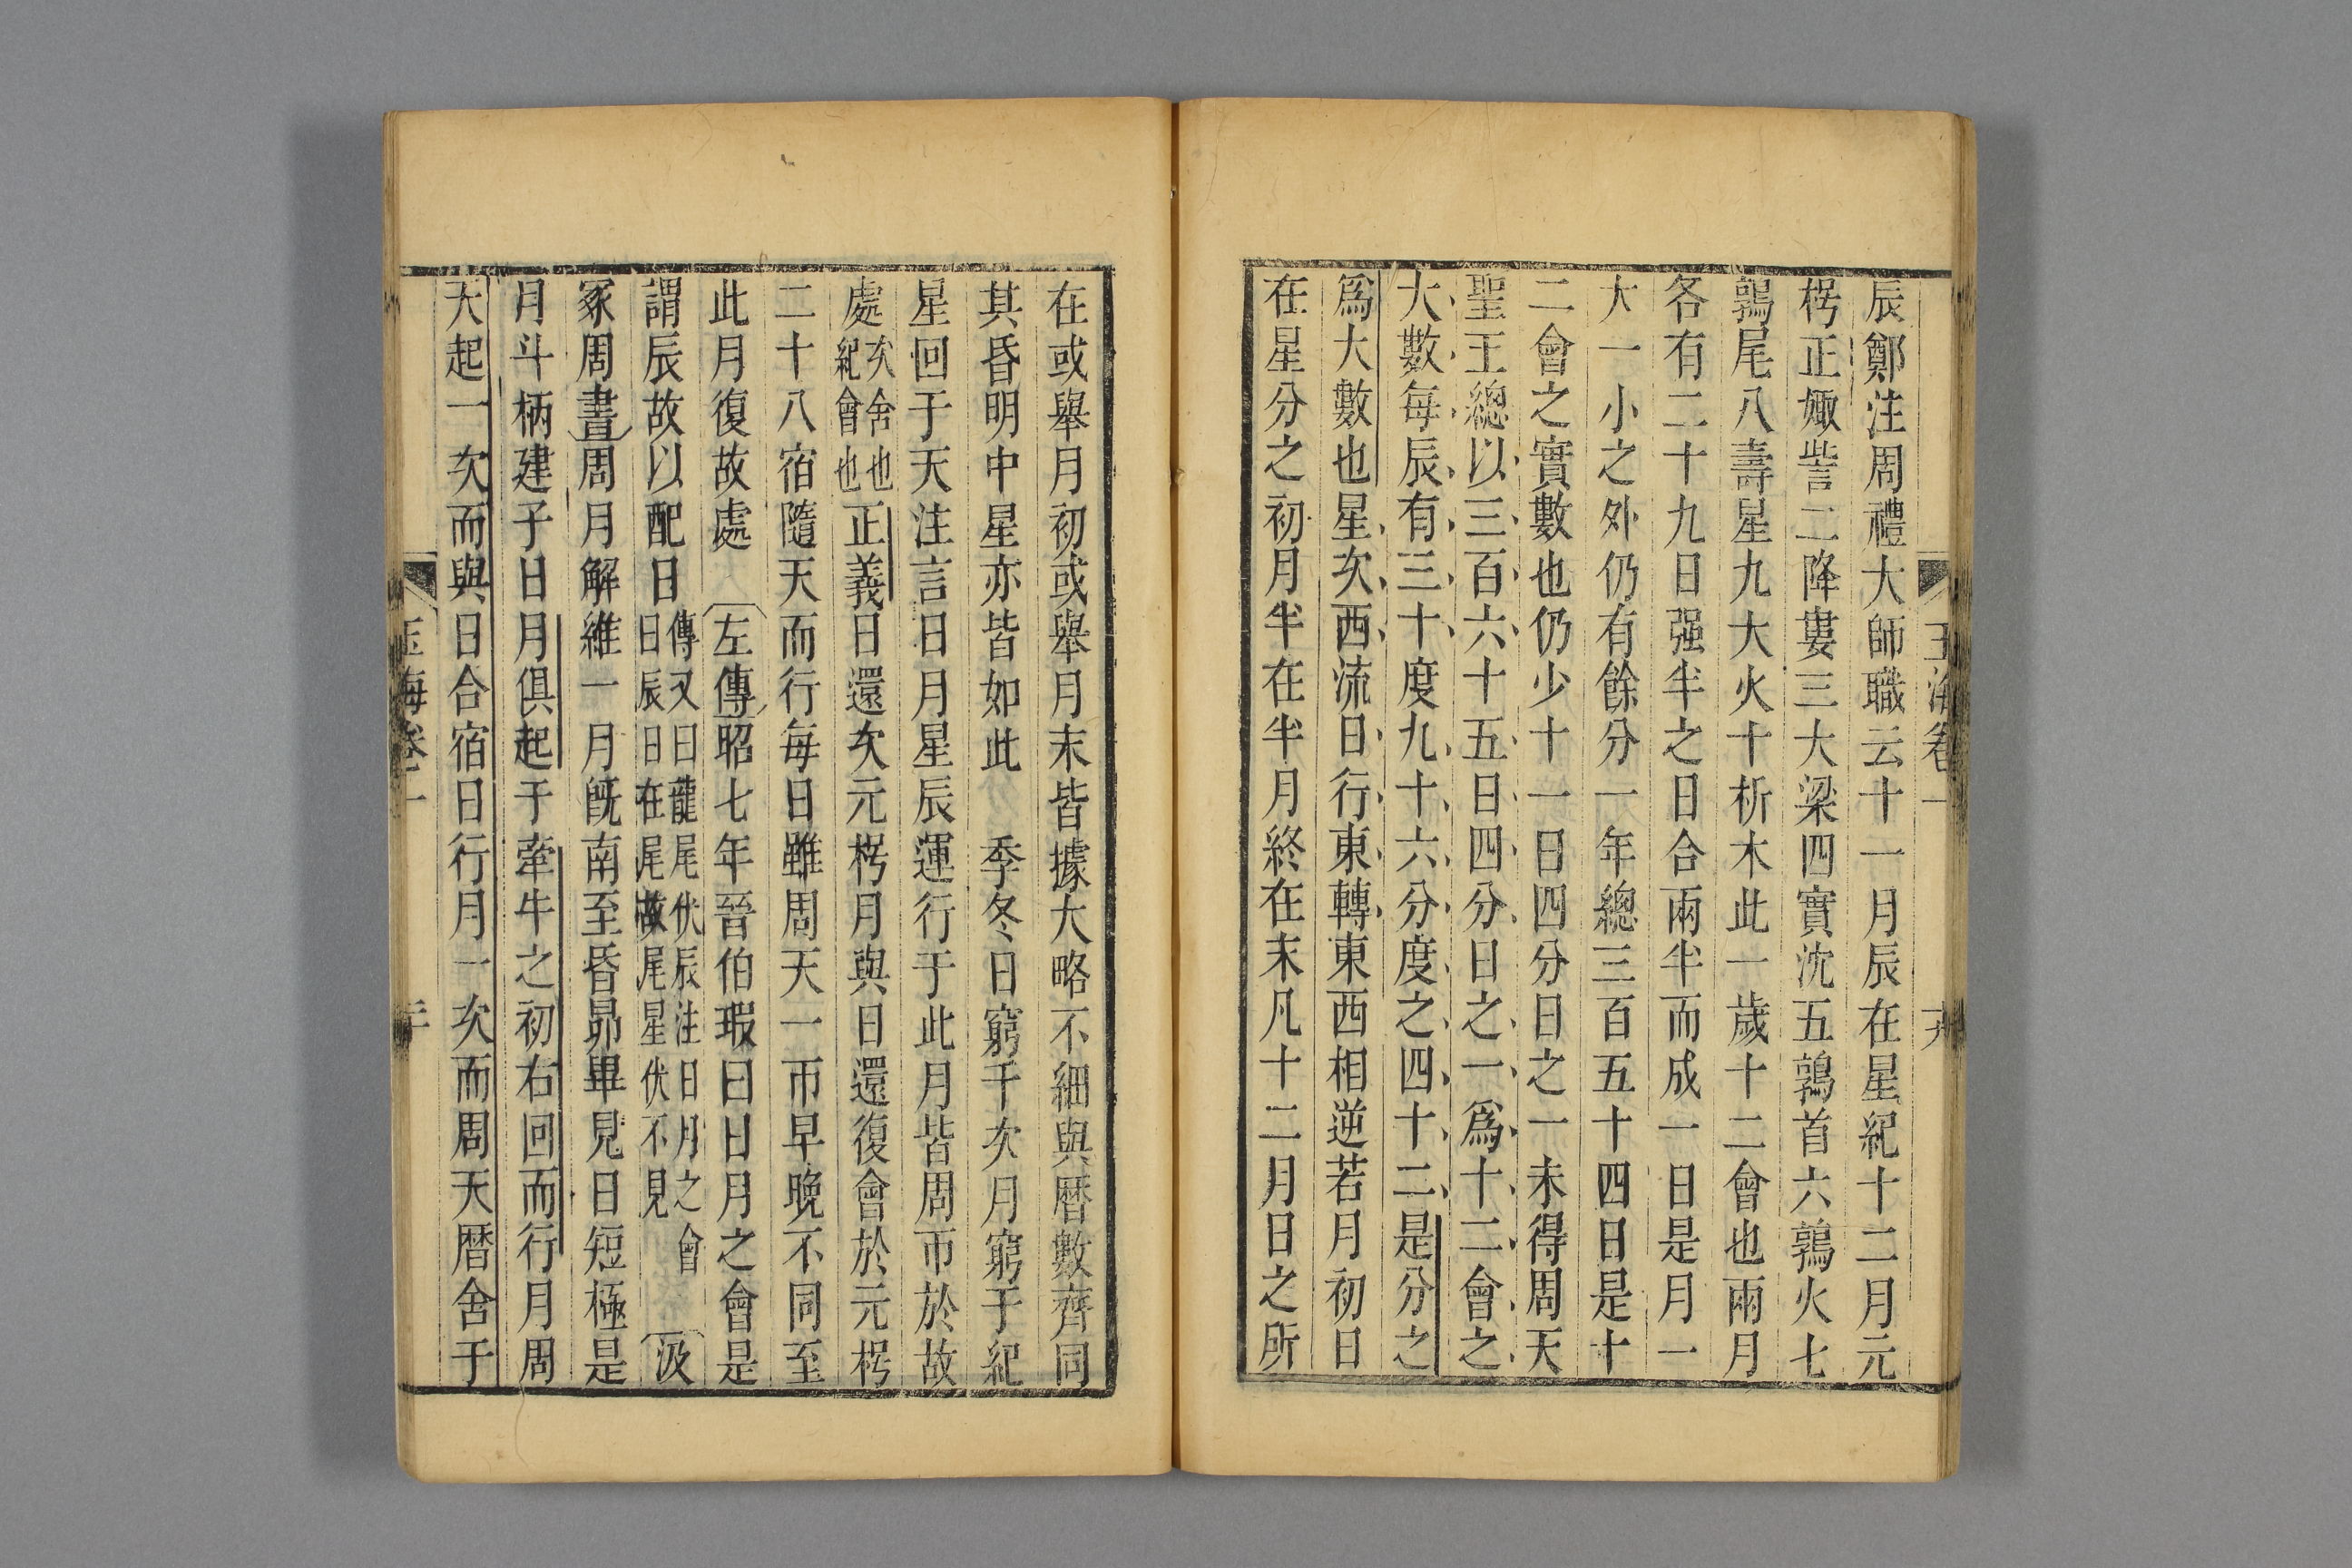 辰鄭注周禮大師職云十一月辰在星紀十二月元
枵正娵訾二降婁三大梁四實沈五鶉首六鶉火七
鶉尾八壽星九大火十析木此一歲十二會也兩月
各有二十九日强半之日合兩半而成一日是月一
大一小之外仍有餘分一年總三百五十四日是十
二會之實數也仍少十一日四分日之一未得周天
聖王總以三百六十五日四分日之一爲十二會之
大數每辰有三十度九十六分度之四十二是分之
爲大數也星次西流日行東轉東西相逆若月初日
在星分之初月半在半月終在末凡十二月日之所
在或舉月初或舉月末皆據大略不細與曆數齊同
其昏明中星亦皆如此 季冬日窮于次月窮于紀
星回于天注言日月星辰運行于此月皆周帀於故
處次舍也紀會也正義曰還次元枵月與日還復會於元枵
二十八宿隨天而行每日雖周天一帀早晚不同至
此月復故處 左傳昭七年晉伯瑕曰日月之會是
謂辰故以配日傳又曰龍尾伏辰注日月之會日辰日在尾故尾星伏不見 汲
冢周書周月解維一月旣南至昏昴畢見日短極是
月斗柄建子日月俱起于牽牛之初右回而行月周
天起一次而與日合宿日行月一次而周天曆舍于